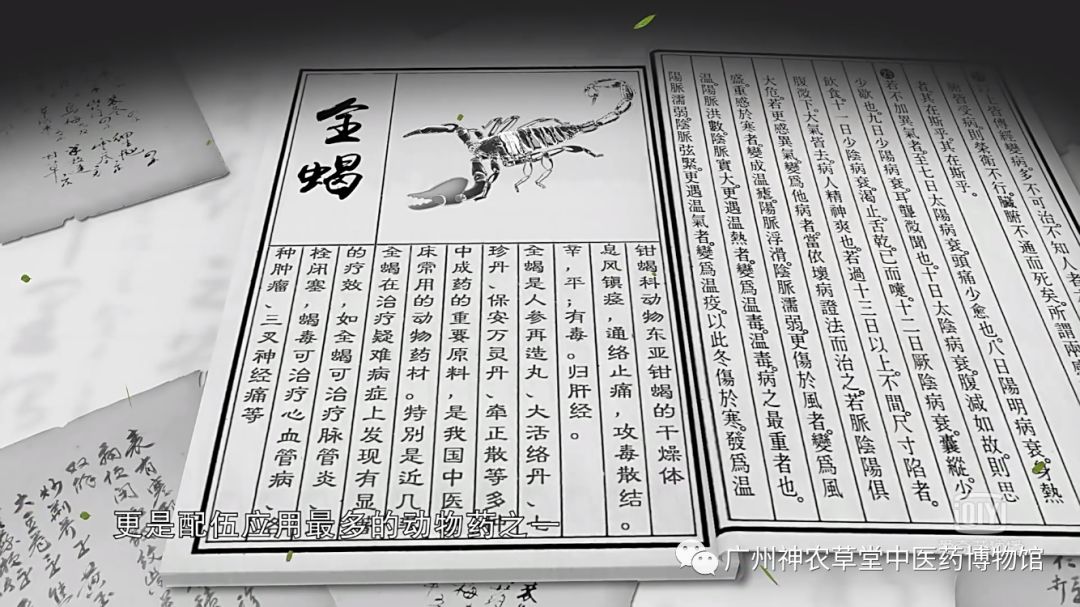 上皆傳經變病多不可治不知人者
皆受病則榮衛不行臟腑不通而死矣所謂兩
者其在斯乎其在斯乎
若不加異氣者至七日太陽病衰頭痛少愈也八日陽明病衰身熱
少歇也九日少陽病衰耳聾微聞也十日太陰病衰腹減如故則思
飲食十一日少陰病衰渴止舌乾已而嚏十二日厥陰病衰囊縱少
腹微下大氣皆去病人精神爽也若過十三日以上不間尺寸陷者
大危若更感異氣變爲他病者當依壞病證法而治之若脈陰陽俱
盛重感於寒者變成温瘧陽脈浮滑陰脈濡弱更傷於風者變爲風
温陽脈洪數陰脈實大更遇温熱者變爲温毒温毒病之最重者也
陽脈濡弱陰脈弦緊更遇温氣者變爲温疫以此冬傷於寒發爲温
全蝎
钳蝎科动物东亚钳蝎的干燥体
息风镇痉，通络止痛，攻毒散结。
辛，平；有毒。归肝经。
全蝎是人参再造丸、大活络丹、七
珍丹、保安万灵丹、牵正散等多
中成药的重要原料，是我国中医
床常用的动物药材。特别是近几
全蝎在治疗疑难病症上发现有显
的疗效，如全蝎可治疗脉管炎、
栓闭塞，蝎毒可治疗心血管病、
种肿瘤、三叉神经痛等
更是配伍应用最多的动物药之一
广州神农草堂中医药博物馆